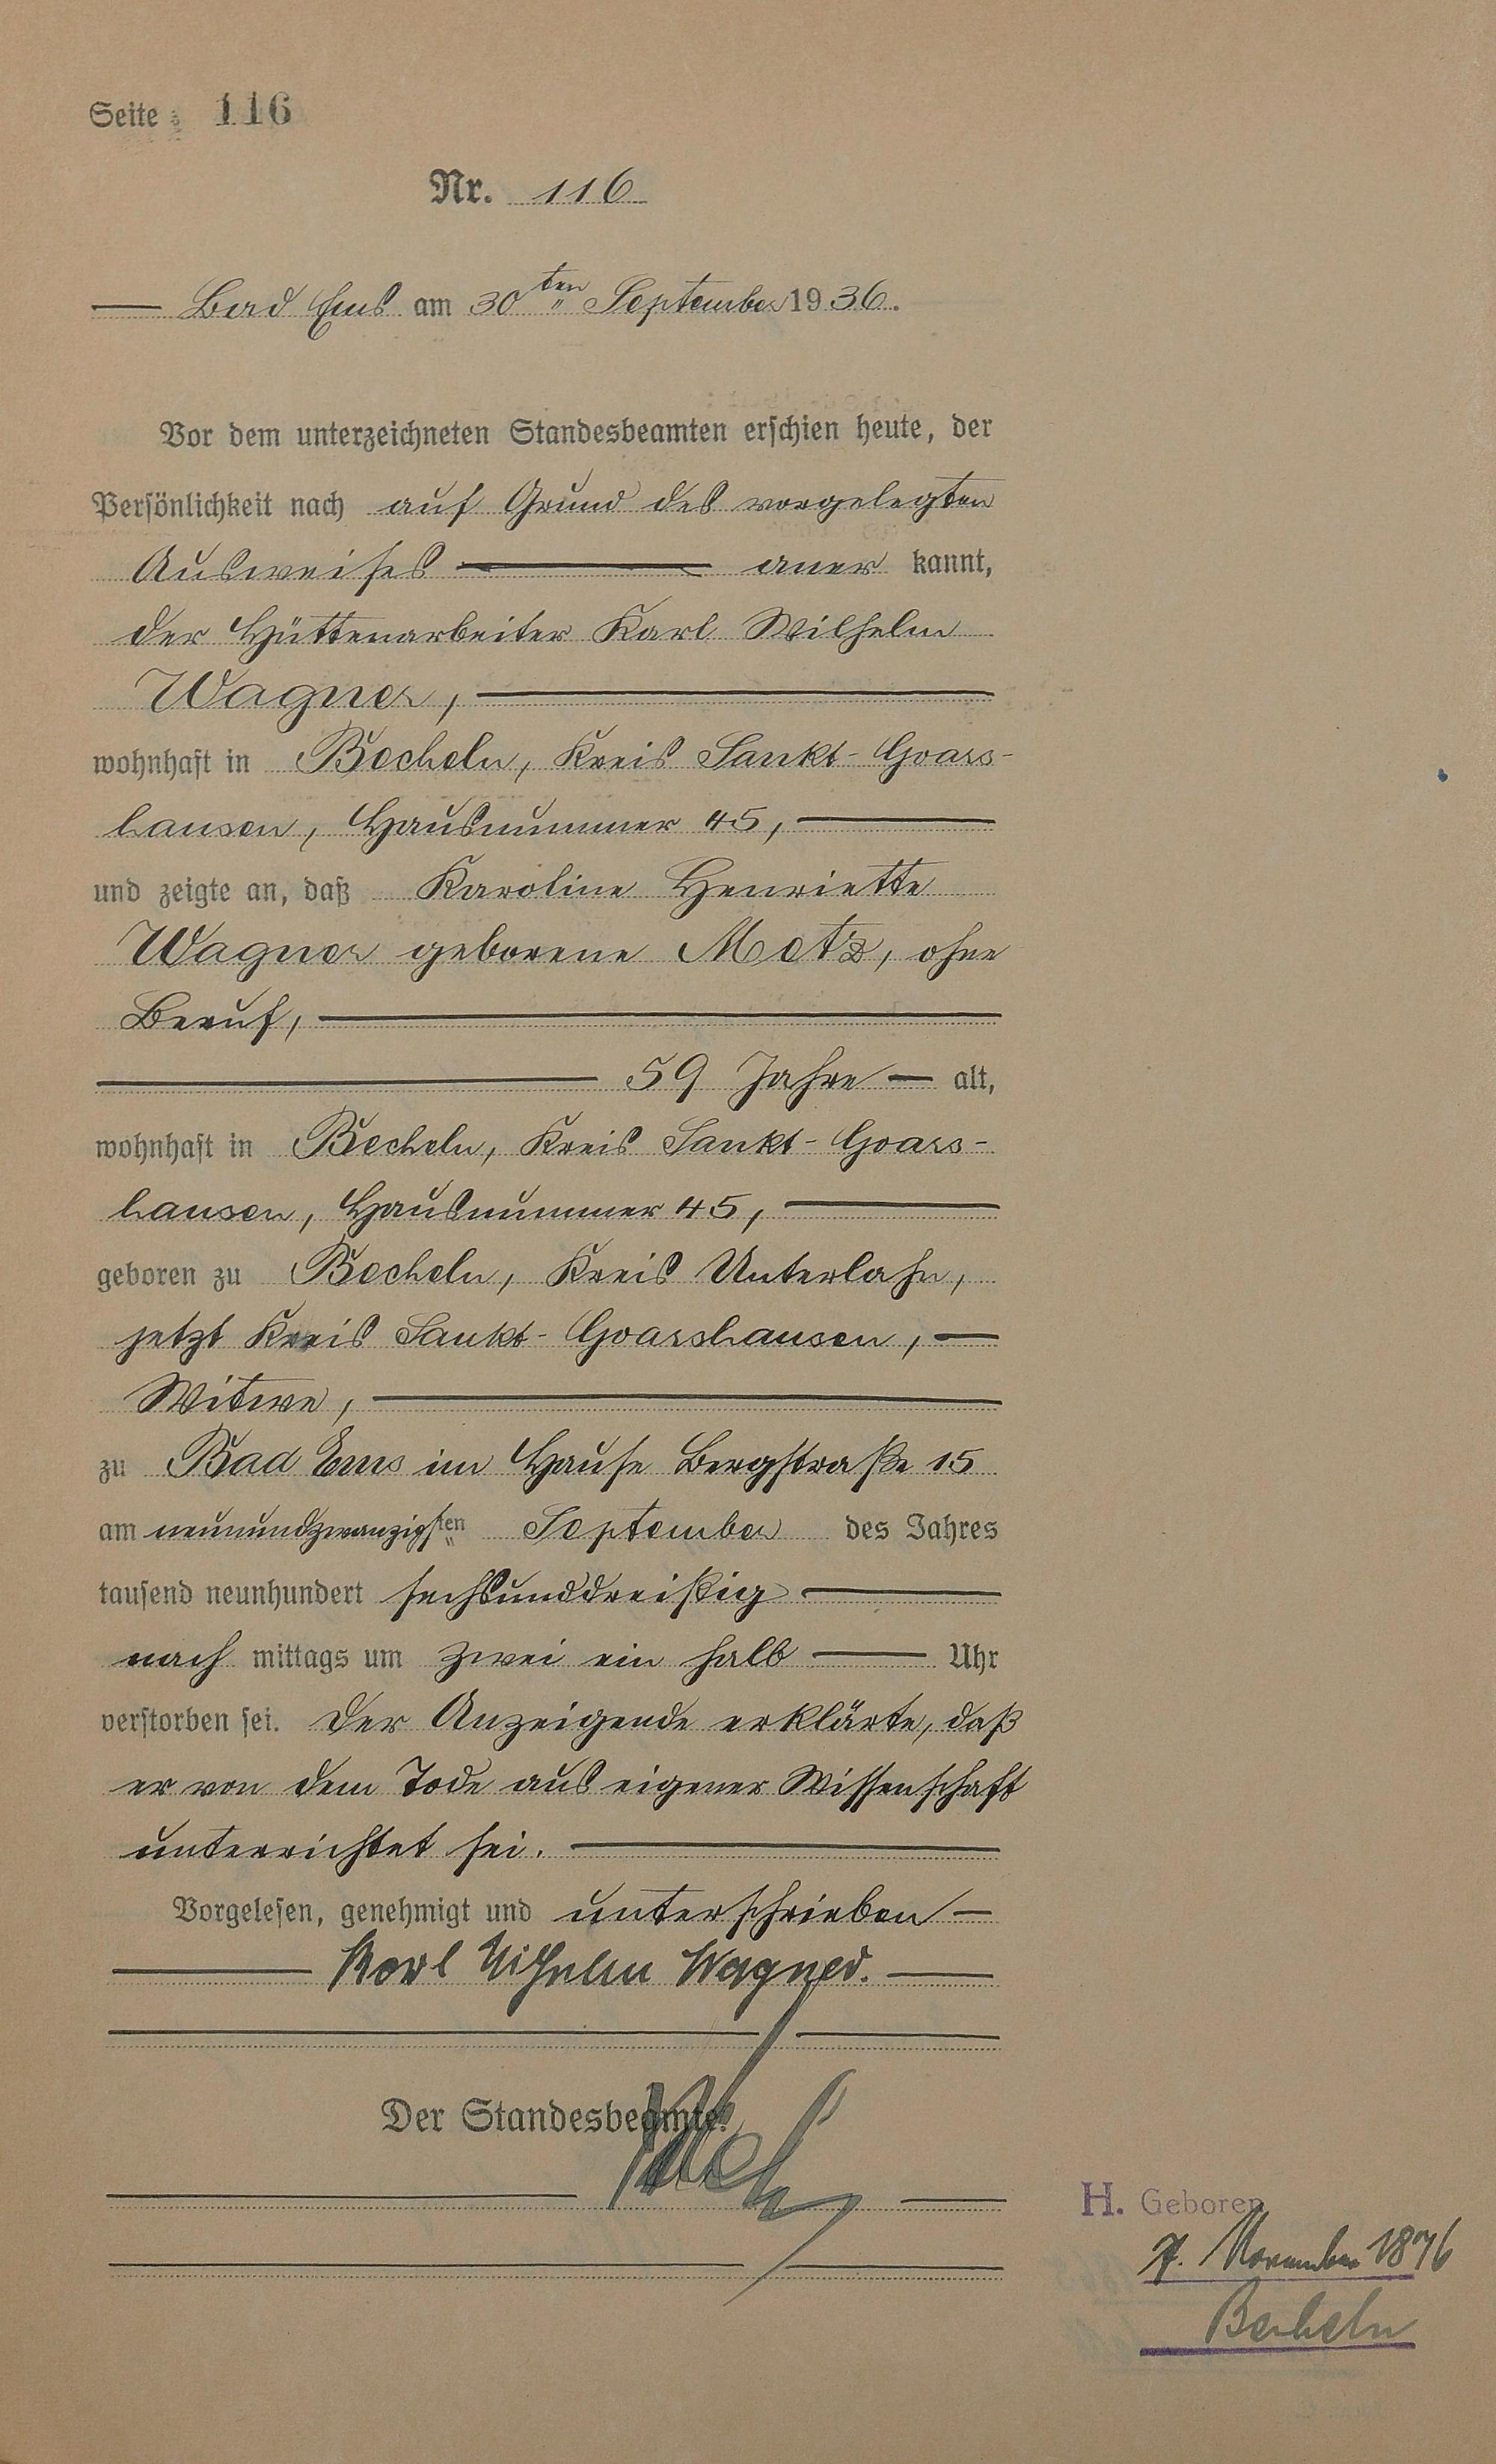 Seite 116
Nr. 116
Bad Ems am 30ten September 1936.
Vor dem unterzeichneten Standesbeamten erschien heute, der
Persönlichkeit nach auf Grund des vorgelegten
Ausweises — aner kannt,
der Hüttenarbeiter Karl Wilhelm
Wagner, —
wohnhaft in Becheln, Kreis Sankt-Goars-
hausen, Hausnummer 45, —
und zeigte an, daß Karoline Henriette
Wagner geborene Metz, ohne
Beruf, —
— 59 Jahre — alt,
wohnhaft in Becheln, Kreis Sankt-Goars-
hausen, Hausnummer 45, —
geboren zu Becheln, Kreis Unterlahn,
jetzt Kreis Sankt-Goarshausen, —
Witwe, —
zu Bad Ems im Hause Bergstraße 15
am neunundzwanzigsten September des Jahres
tausend neunhundert sechsunddreißig —
nach mittags um zwei ein halb — Uhr
verstorben sei. Der Anzeigende erklärte, daß
er von dem Tode aus eigener Wissenschaft
unterrichtet sei. —
Vorgelesen, genehmigt und unterschrieben —
— Karl Wilhelm Wagner. —
Der Standesbeamte.
H. Geboren
7. November 1876
Becheln